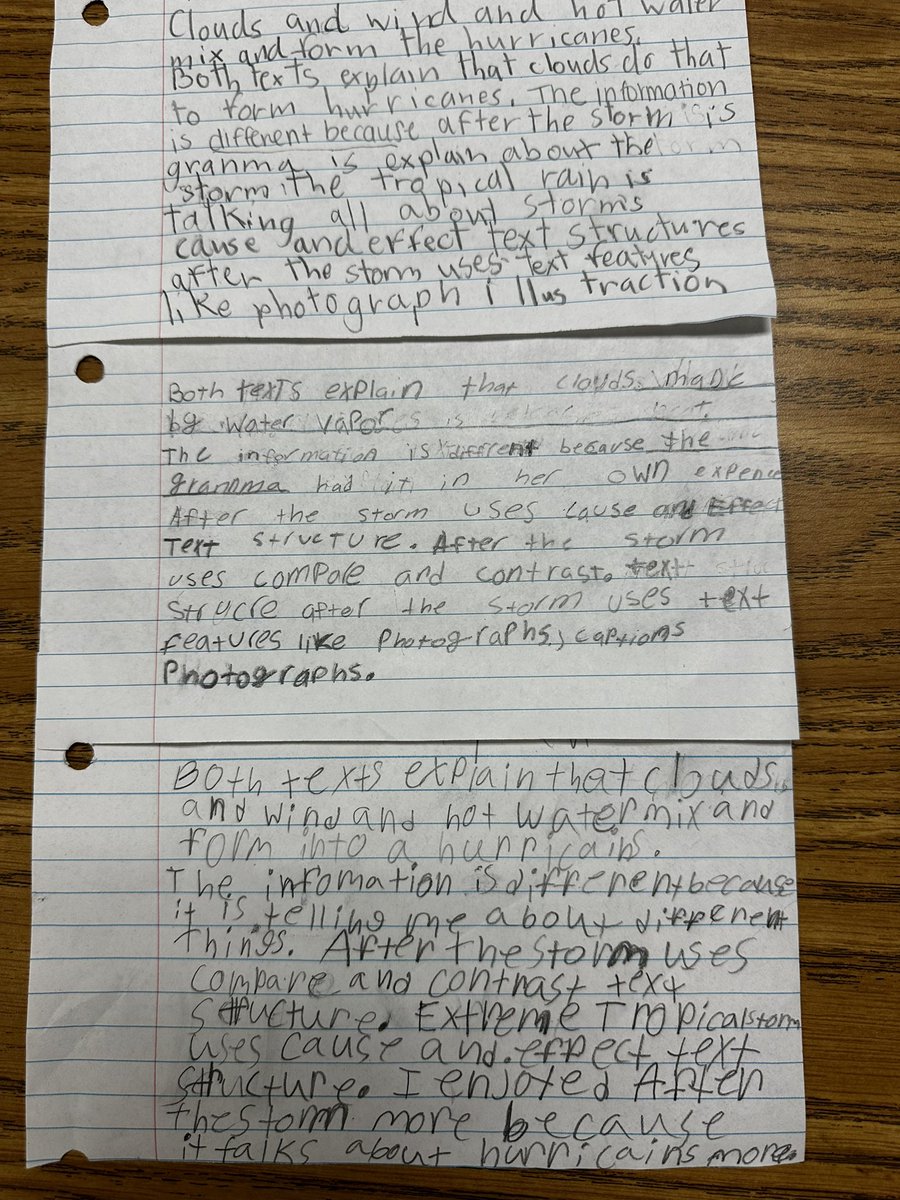 Clouds and wind and hot water
mix and form the hurricanes.
Both texts explain that clouds do that
to form hurricanes. The information
is different because after the storm is
granma is explain about the
storm. the tropical rain is
talking all about storms
cause and effect text structures
after the storm uses text features
like photograph illustraction
Both texts explain that clouds. mank
by water vapor
The information is different because the
grannma had it in her own expence
After the storm uses cause and Effect
Text structure. After the storm
uses compare and contrast. text struc
strucre after the storm uses text
features like Photographs, captions
Photographs.
Both texts explain that clouds
and wind and hot water mix and
form into a hurricains.
The infomation is different because
it is telling me about different
things. After the storm uses
compare and contrast text
structure. Extreme Tropicalstorm
uses cause and effect text
structure. I enjoted After
thestorm more because
it talks about hurricains more.